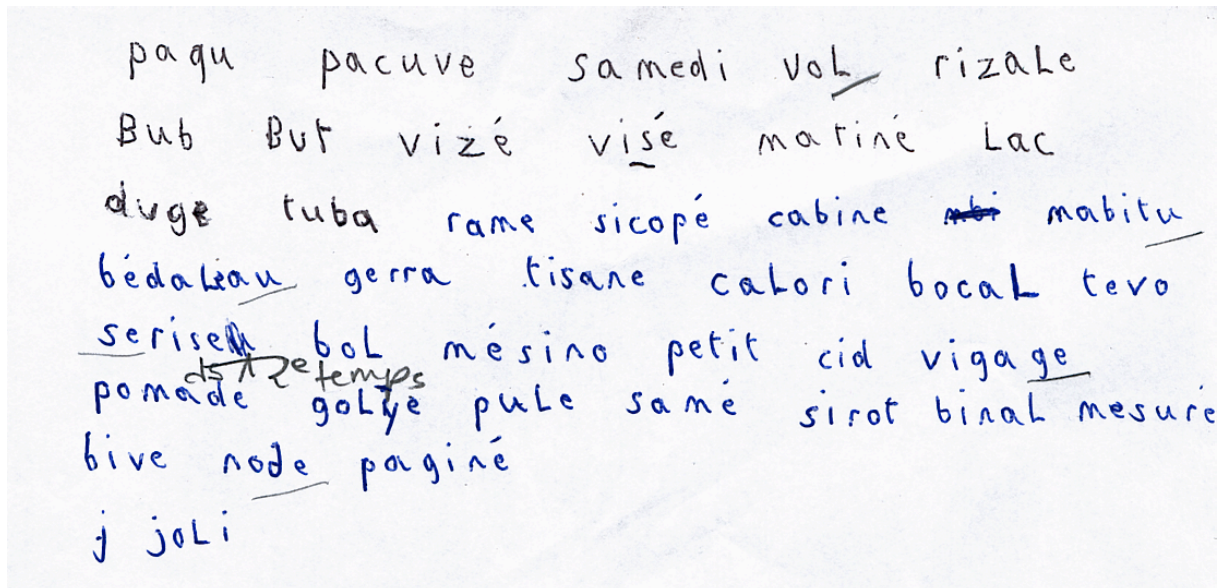 pagu pacuve samedi voL rizaLe
Bub But vizé visé matiné Lac
duge tuba rame sicopé cabine mabitu
gerra tisane caLori bocaL tevo
serise boL mésino petit cid vigage
ds 2e temps
pomade puLe samé sirot binaL mesuré
bive node paginé
j joLi